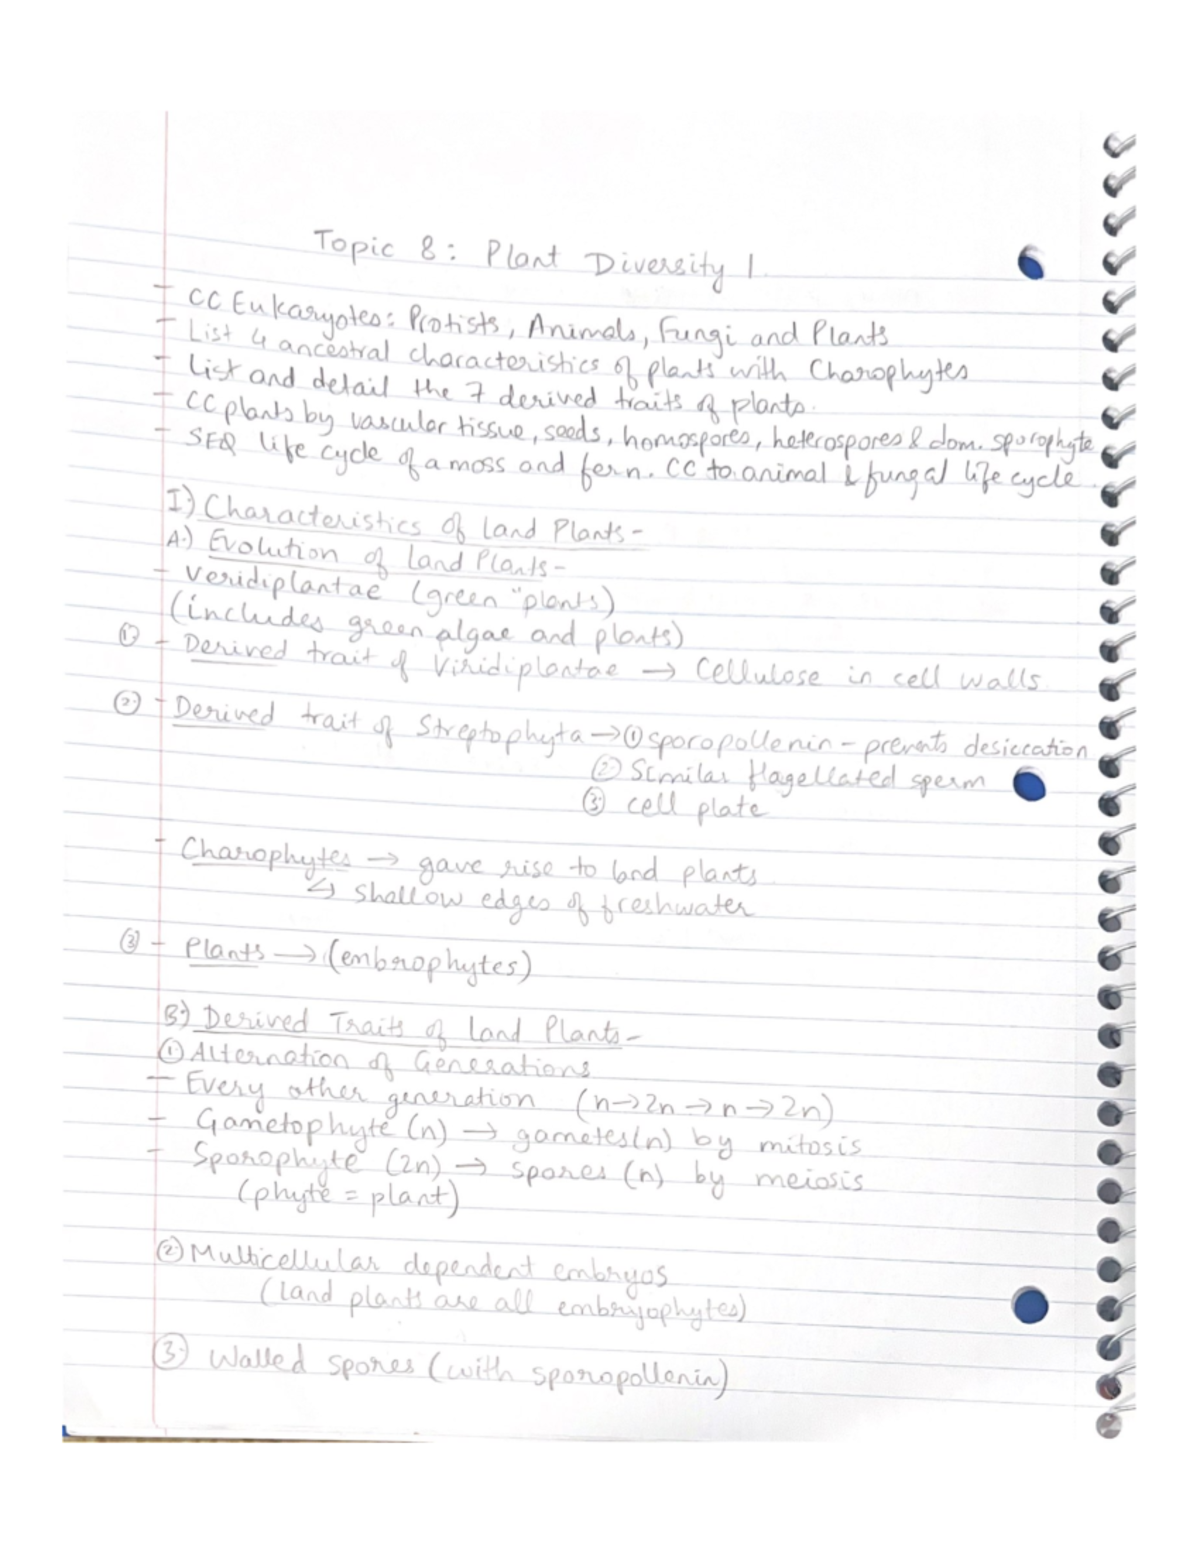 Topic 8: Plant Diversity 1.
- CC Eukaryotes: Protists, Animals, Fungi and Plants
- List 4 ancestral characteristics of plants with Charophytes
- List and detail the 7 derived traits of plants.
- CC plants by vascular tissue, seeds, homospores, heterospores & dom. sporophyte
- SEQ life cycle of a moss and fern. CC to animal & fungal life cycle.
I.) Characteristics of land Plants-
A.) Evolution of Land Plants-
- Veridiplantae (green "plants)
(includes green algae and plants)
① - Derived trait of Viridiplantae → Cellulose in cell walls
② - Derived trait of Streptophyta → ① sporopollenin - prevents desiccation
② Similar flagellated sperm
③ cell plate
- Charophytes → gave rise to land plants
↳ shallow edges of freshwater
③ - Plants → (embrophytes)
B.) Derived Traits of Land Plants-
① Alternation of Generations
- Every other generation (n→2n→n→2n)
- Gametophyte (n) → gametes(n) by mitosis
- Sporophyte (2n) → spores (n) by meiosis
(phyte = plant)
② Multicellular dependent embryos
(land plants are all embryophytes)
③ Walled spores (with sporopollenin)